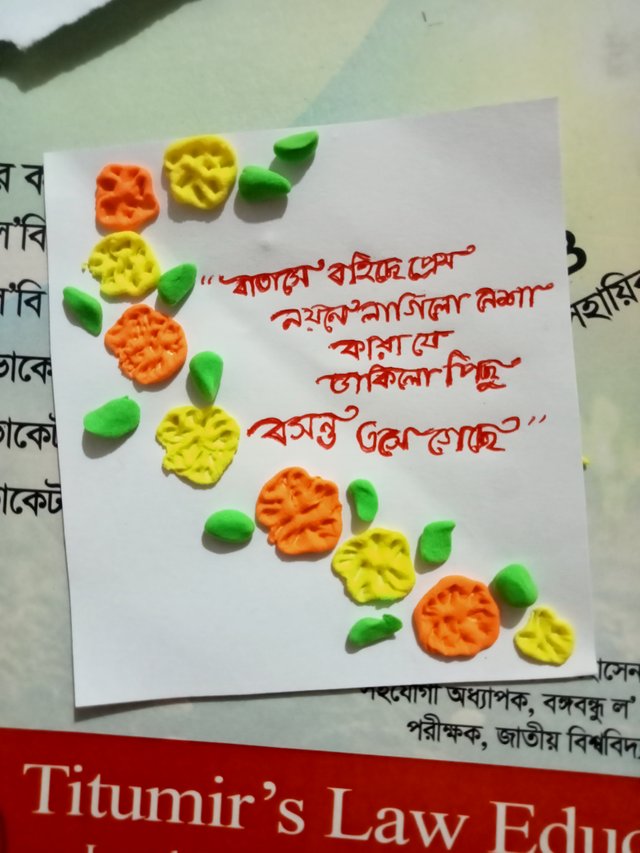 র ব
ল'বি
ল'বি
"বাতাসে বহিছে প্রেম
নয়নে লাগিলো নেশা
কারা যে
ডাকিলো পিছু
বসন্ত এসে গেছে"
সহযোগী অধ্যাপক, বঙ্গবন্ধু ল'
পরীক্ষক, জাতীয় বিশ্ববিদ্য
Titumir's Law Educ